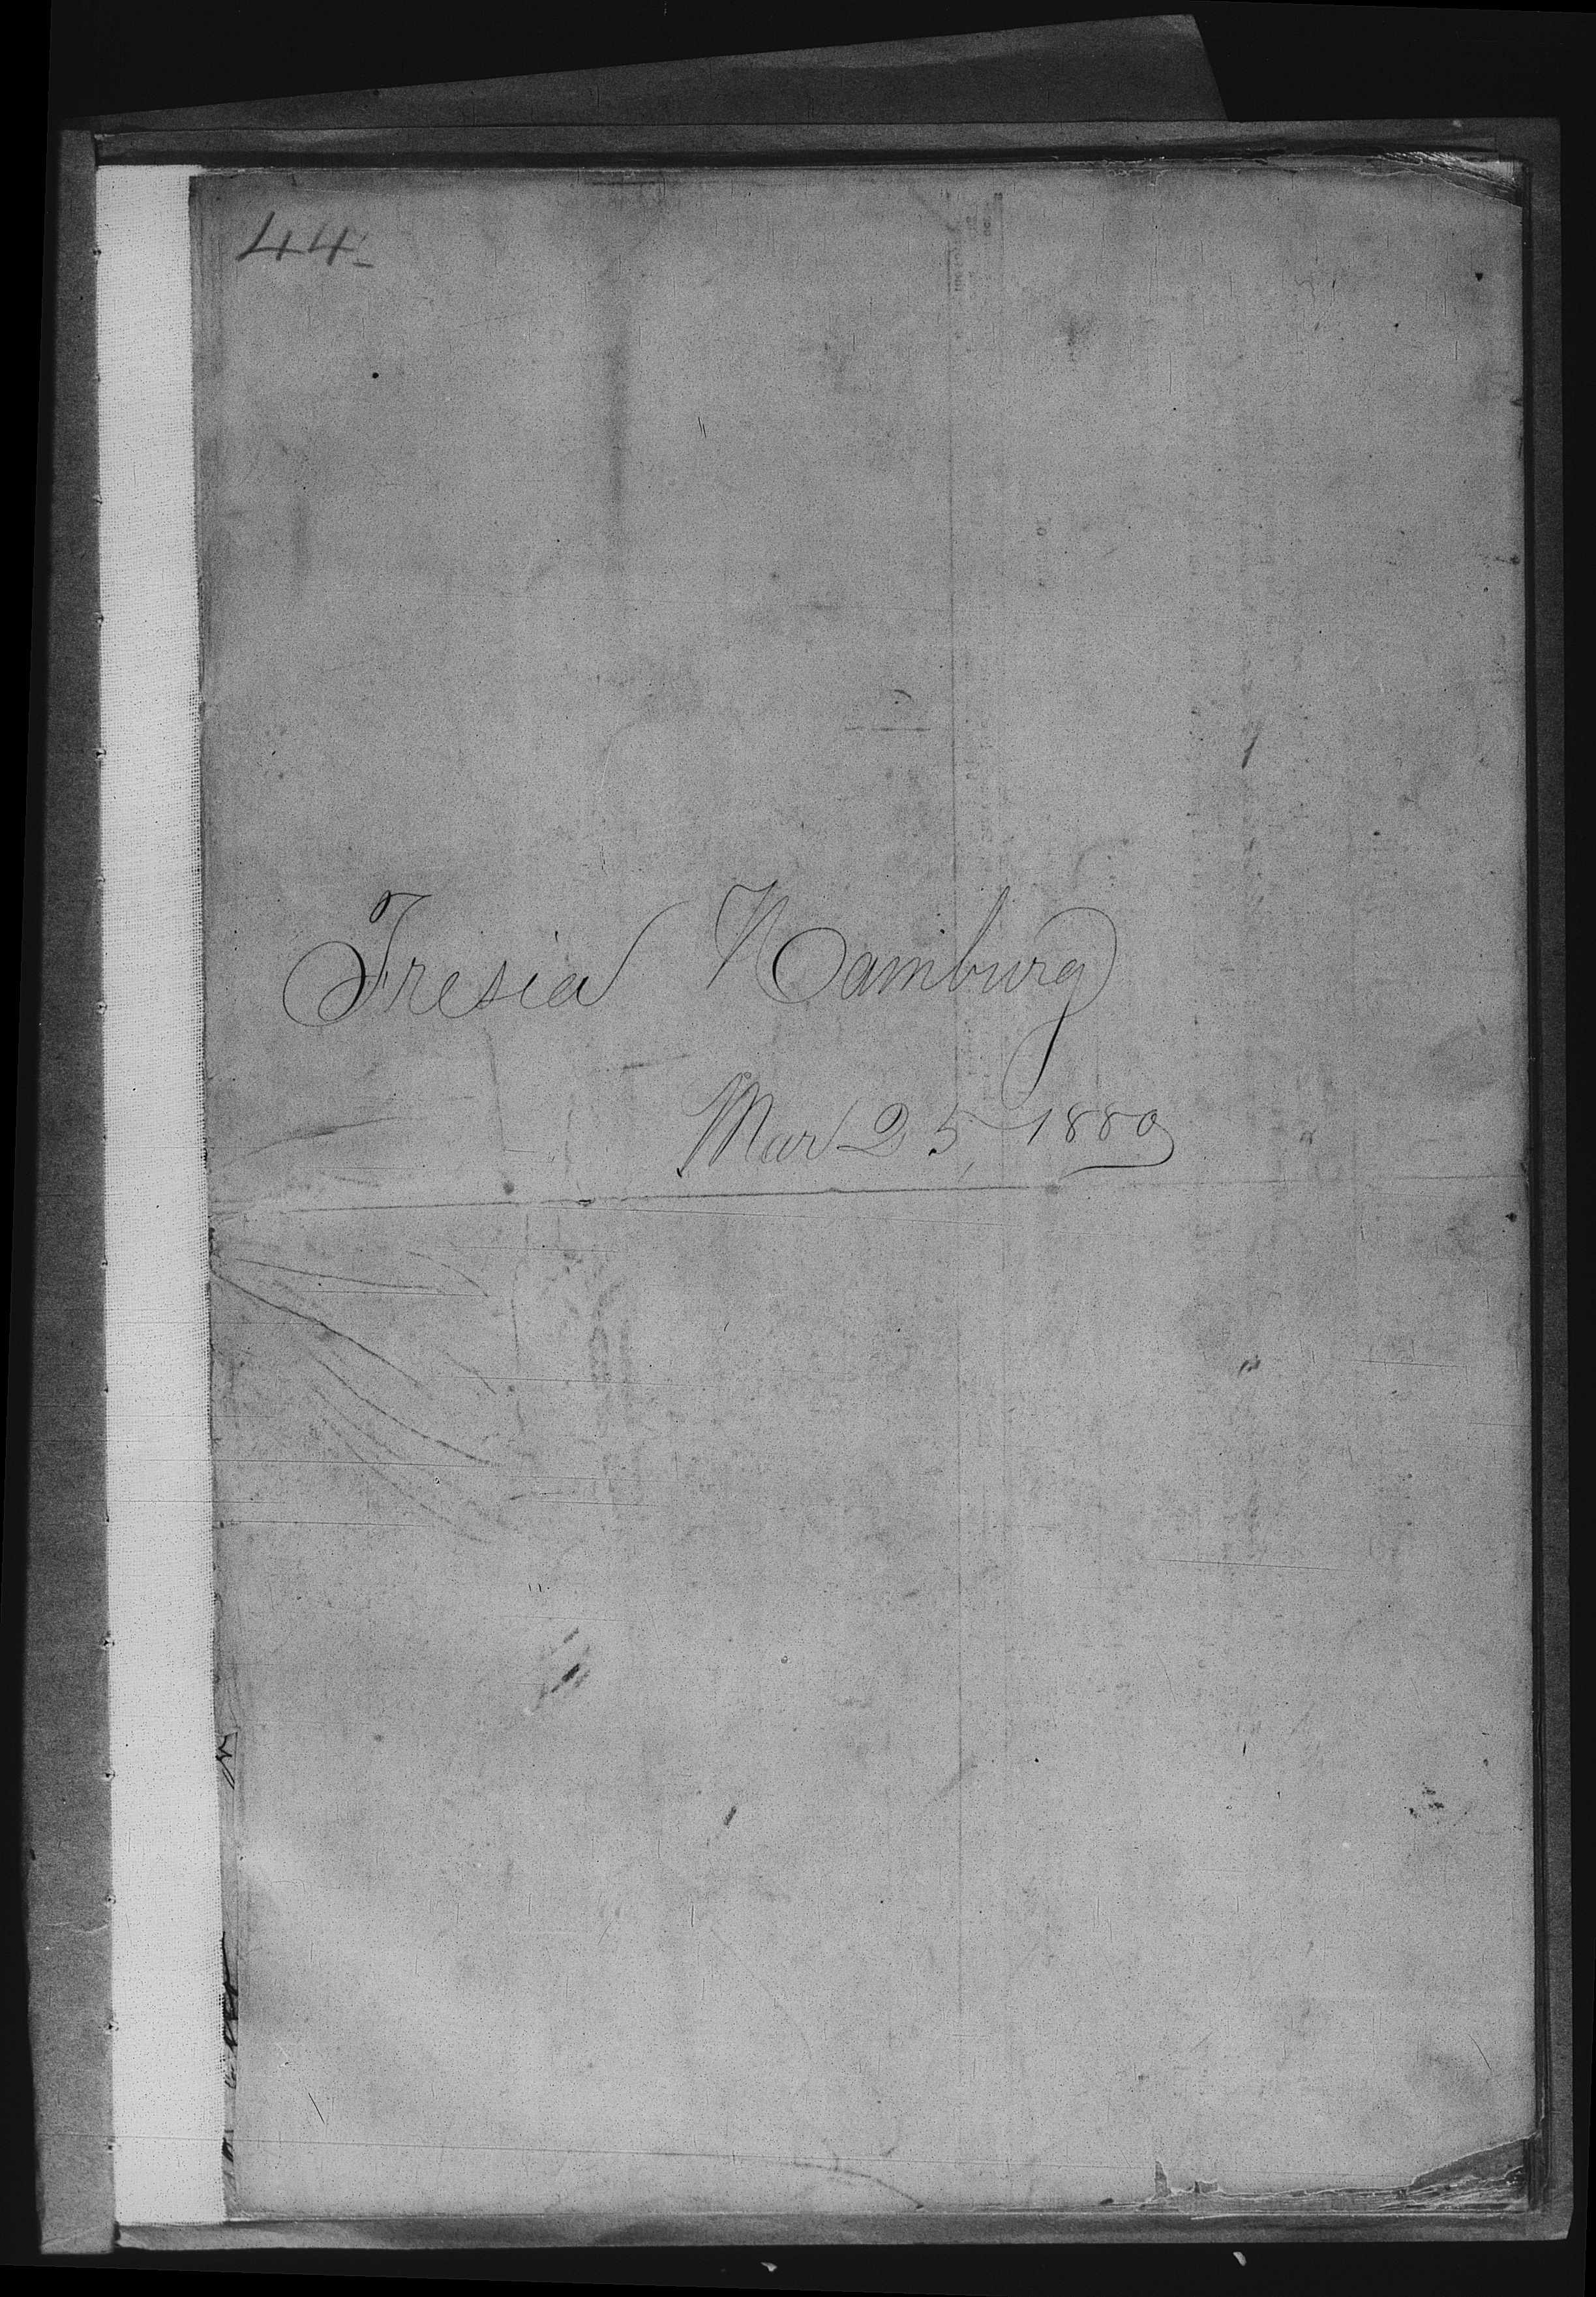 44
Fresia Hamburg
Mar 25, 1880